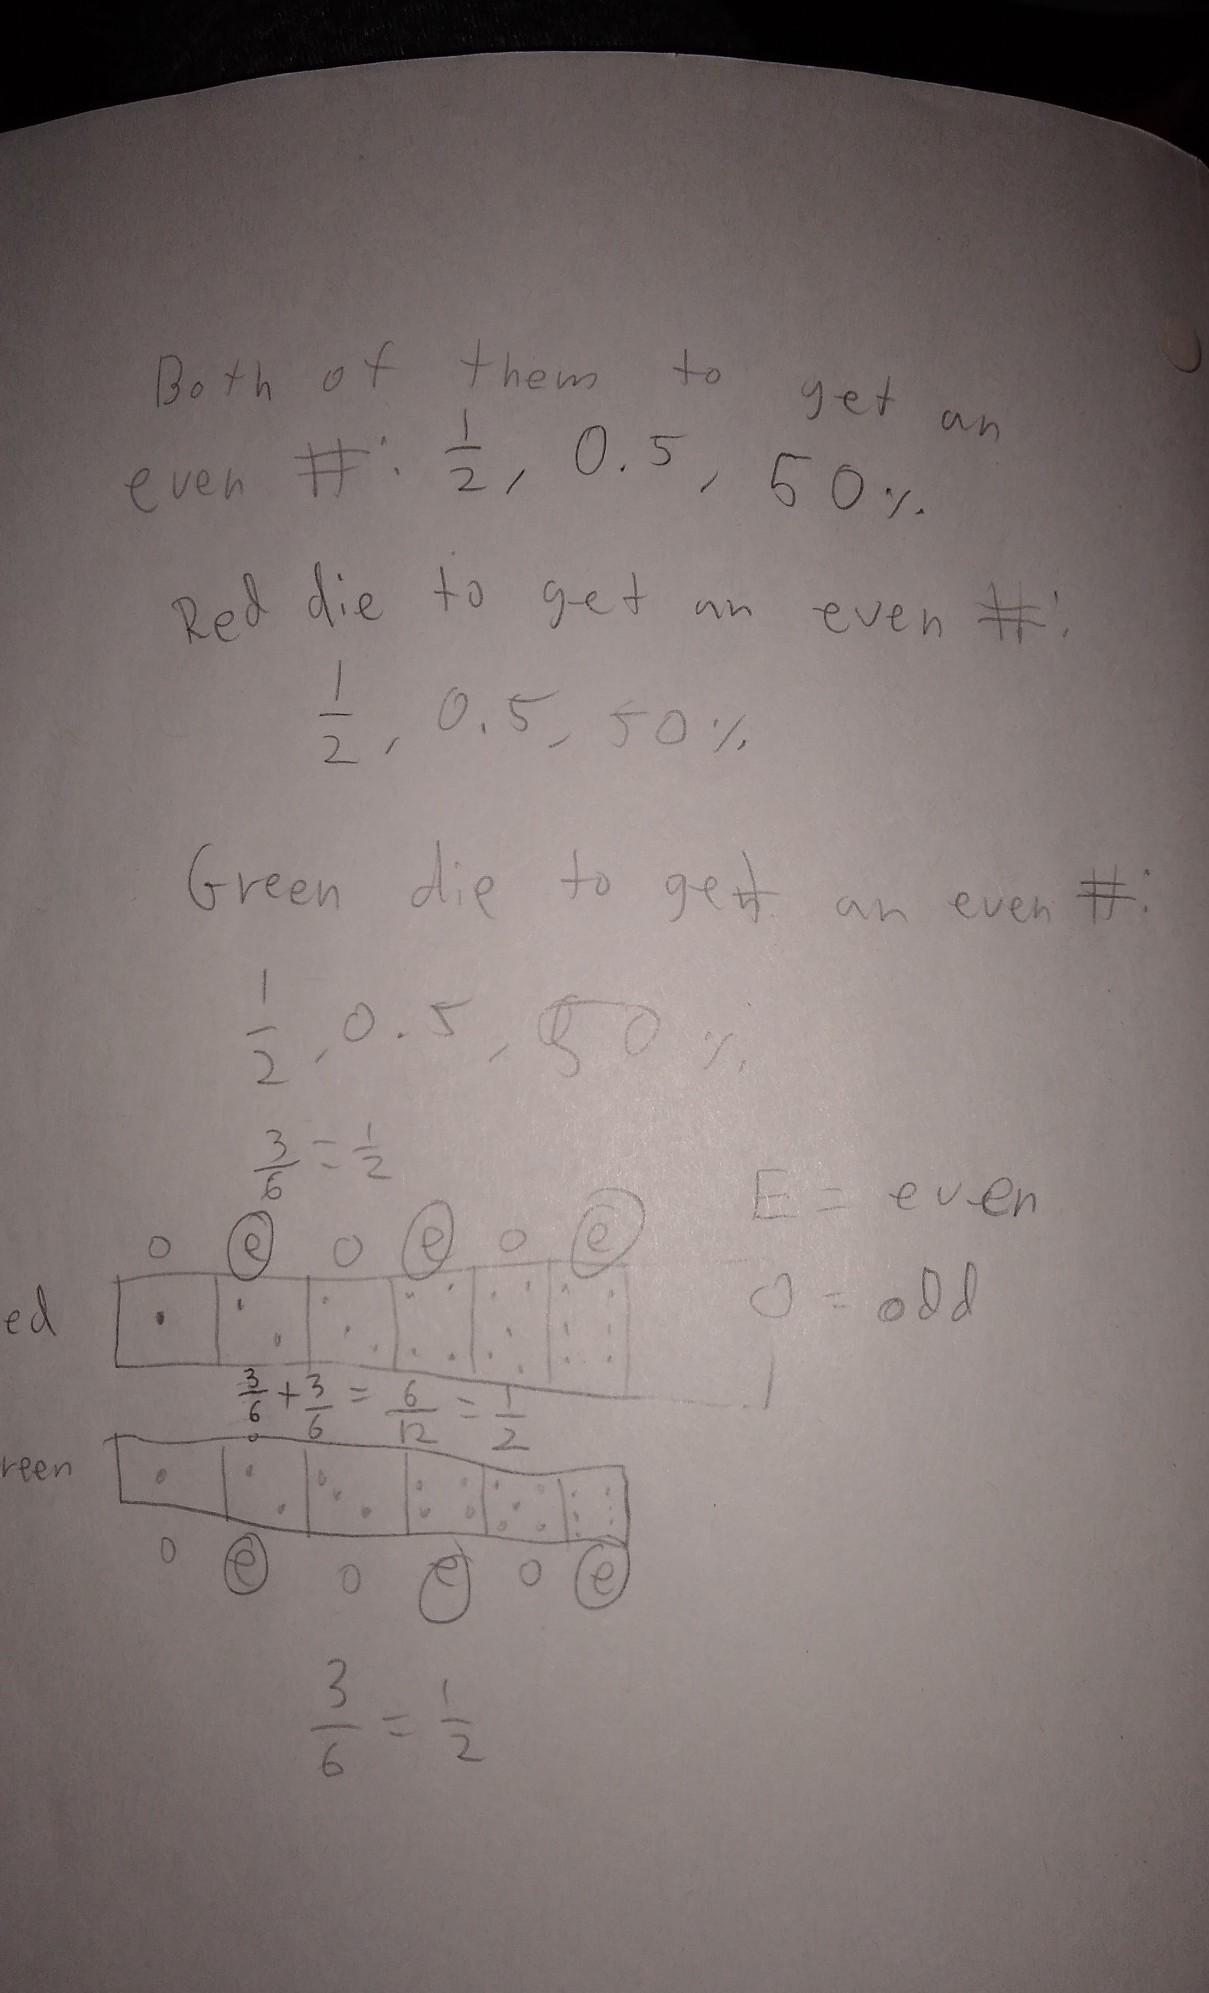 Both of them to get an
even #: 1/2, 0.5, 50%
Red die to get an even #:
1/2, 0.5, 50%
Green die to get an even #:
1/2, 0.5, 50%
3/6 = 1/2
E = even
o e o e o e
O = odd
ed
3/6 + 3/6 = 6/12 = 1/2
reen
o e o e o e
3/6 = 1/2